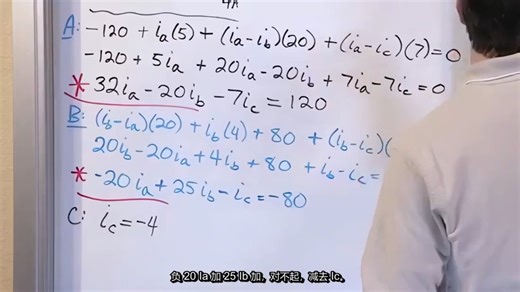 4A
A: -120 + ia(5) + (ia-ib)(20) + (ia-ic)(7) = 0
-120 + 5ia + 20ia - 20ib + 7ia - 7ic = 0
* 32ia - 20ib - 7ic = 120
B: (ib-ia)(20) + ib(4) + 80 + (ib-ic)(
20ib - 20ia + 4ib + 80 + ib - ic =
* -20ia + 25ib - ic = -80
C: ic = -4
负 20 Ia 加 25 Ib 加，对不起，减去 Ic，